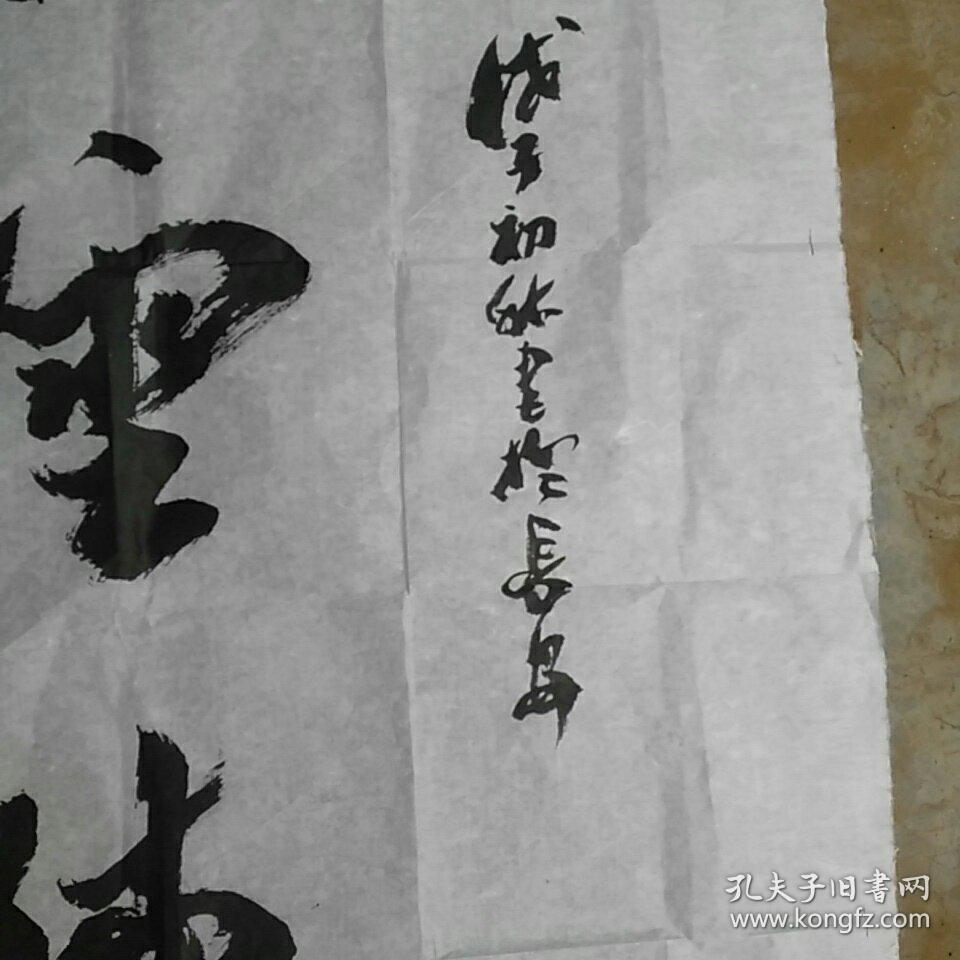 戊子初秋書於長安
孔夫子旧書网
www.kongfz.com